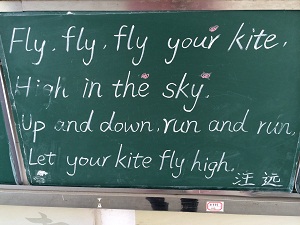 Fly, fly, fly your kite,
High in the sky.
Up and down, run and run,
Let your kite fly high.
汪远